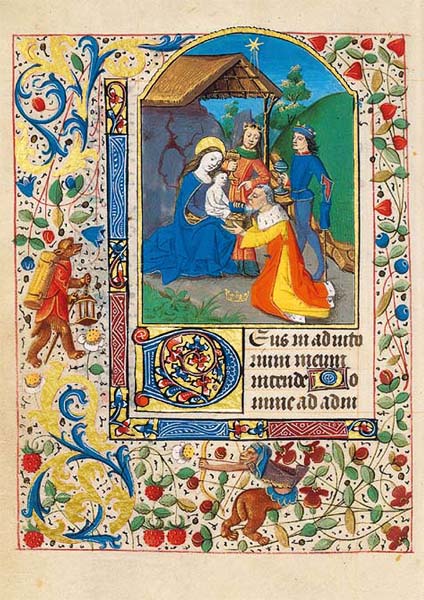 Deus in adiuto
rium meum
intende Do
mine ad adiu